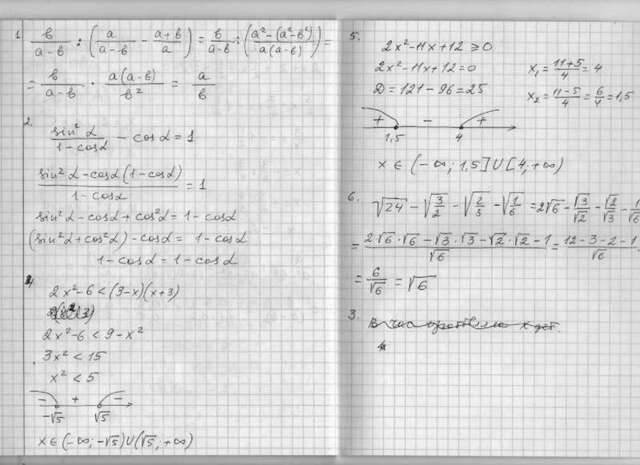 1. в/(a-в) : (a/(a-в) - (a+в)/a) = в/(a-в) : ((a²-(a²-в²))/(a(a-в))) =
= в/(a-в) · a(a-в)/в² = a/в
2.
sin²α/(1-cosα) - cosα = 1
(sin²α-cosα(1-cosα))/(1-cosα) = 1
sin²α-cosα+cos²α = 1-cosα
(sin²α+cos²α)-cosα = 1-cosα
1-cosα = 1-cosα
4. 2x²-6<(3-x)(x+3)
2x²-6<9-x²
3x²<15
x²<5
- + -
-√5 √5
x∈(-∞; -√5)∪(√5; +∞)
5.
2x²-11x+12≥0
2x²-11x+12=0 x₁ = (11+5)/4 = 4
D=121-96=25 x₂ = (11-5)/4 = 6/4 = 1,5
+ - +
1,5 4
x∈(-∞; 1,5]∪[4; +∞)
6. √24 - √(3/2) - √(2/3) - √(1/6) = 2√6 - √3/√2 - √2/√3 - 1/
= (2√6·√6-√3·√3-√2·√2-1)/√6 = (12-3-2-1)/√6
= 6/√6 = √6
3. В час